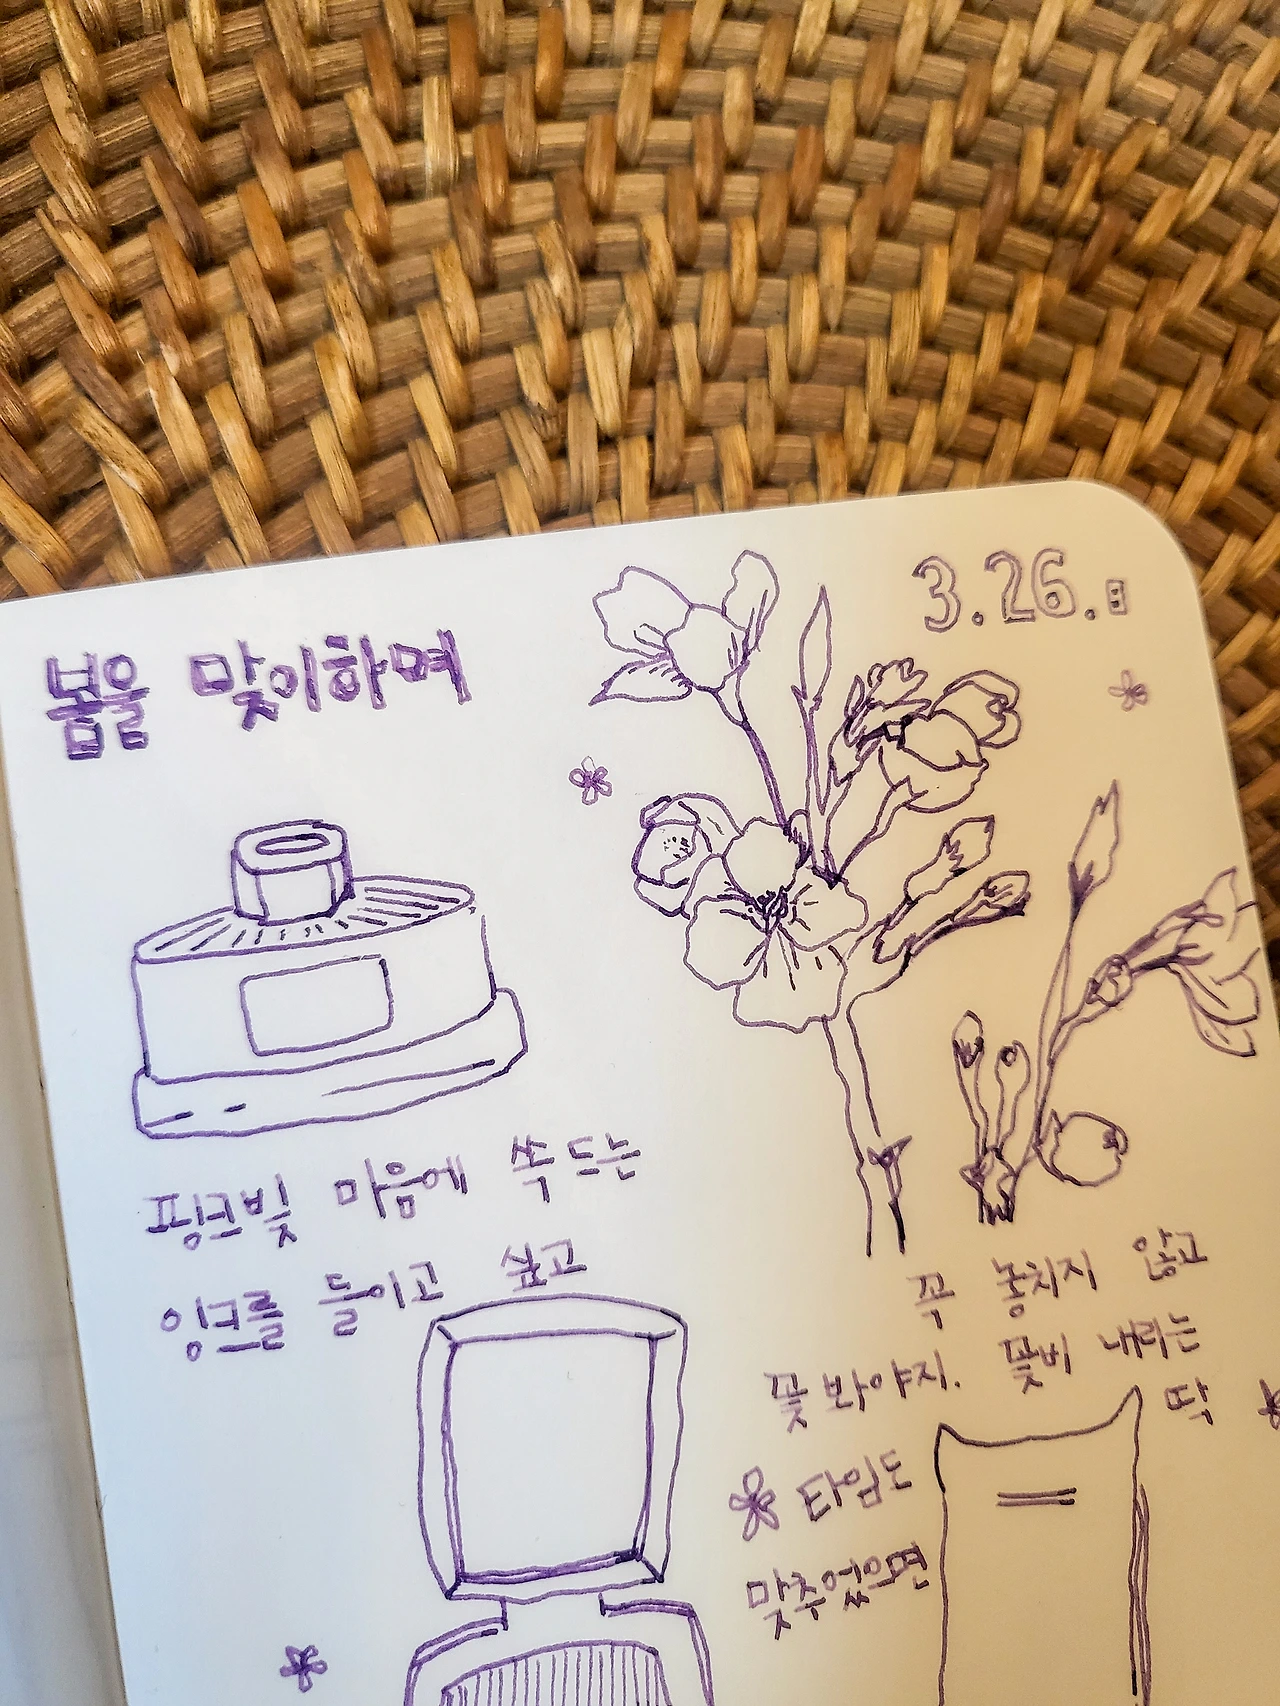 3.26.
봄을 맞이하며
핑크빛 마음에 쏙 드는
잉크를 들이고 싶고
꼭 놓치지 않고
꽃 봐야지. 꽃비 내리는
딱
타임도
맞추었으면